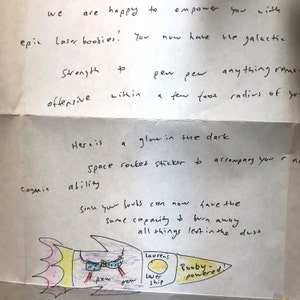 we are happy to empower you with
epic laser boobies! You now have the galactic
strength to pew pew anything remo
offensive within a few foot radius of yo
Here is a glow in the dark
space rocket sticker to accompany your n
cosmic ability
since your boobs can now have the
same capacity to turn away
all things left in the dust
pew pew
Lauren's
Lazer
ship
Booby-
powered!